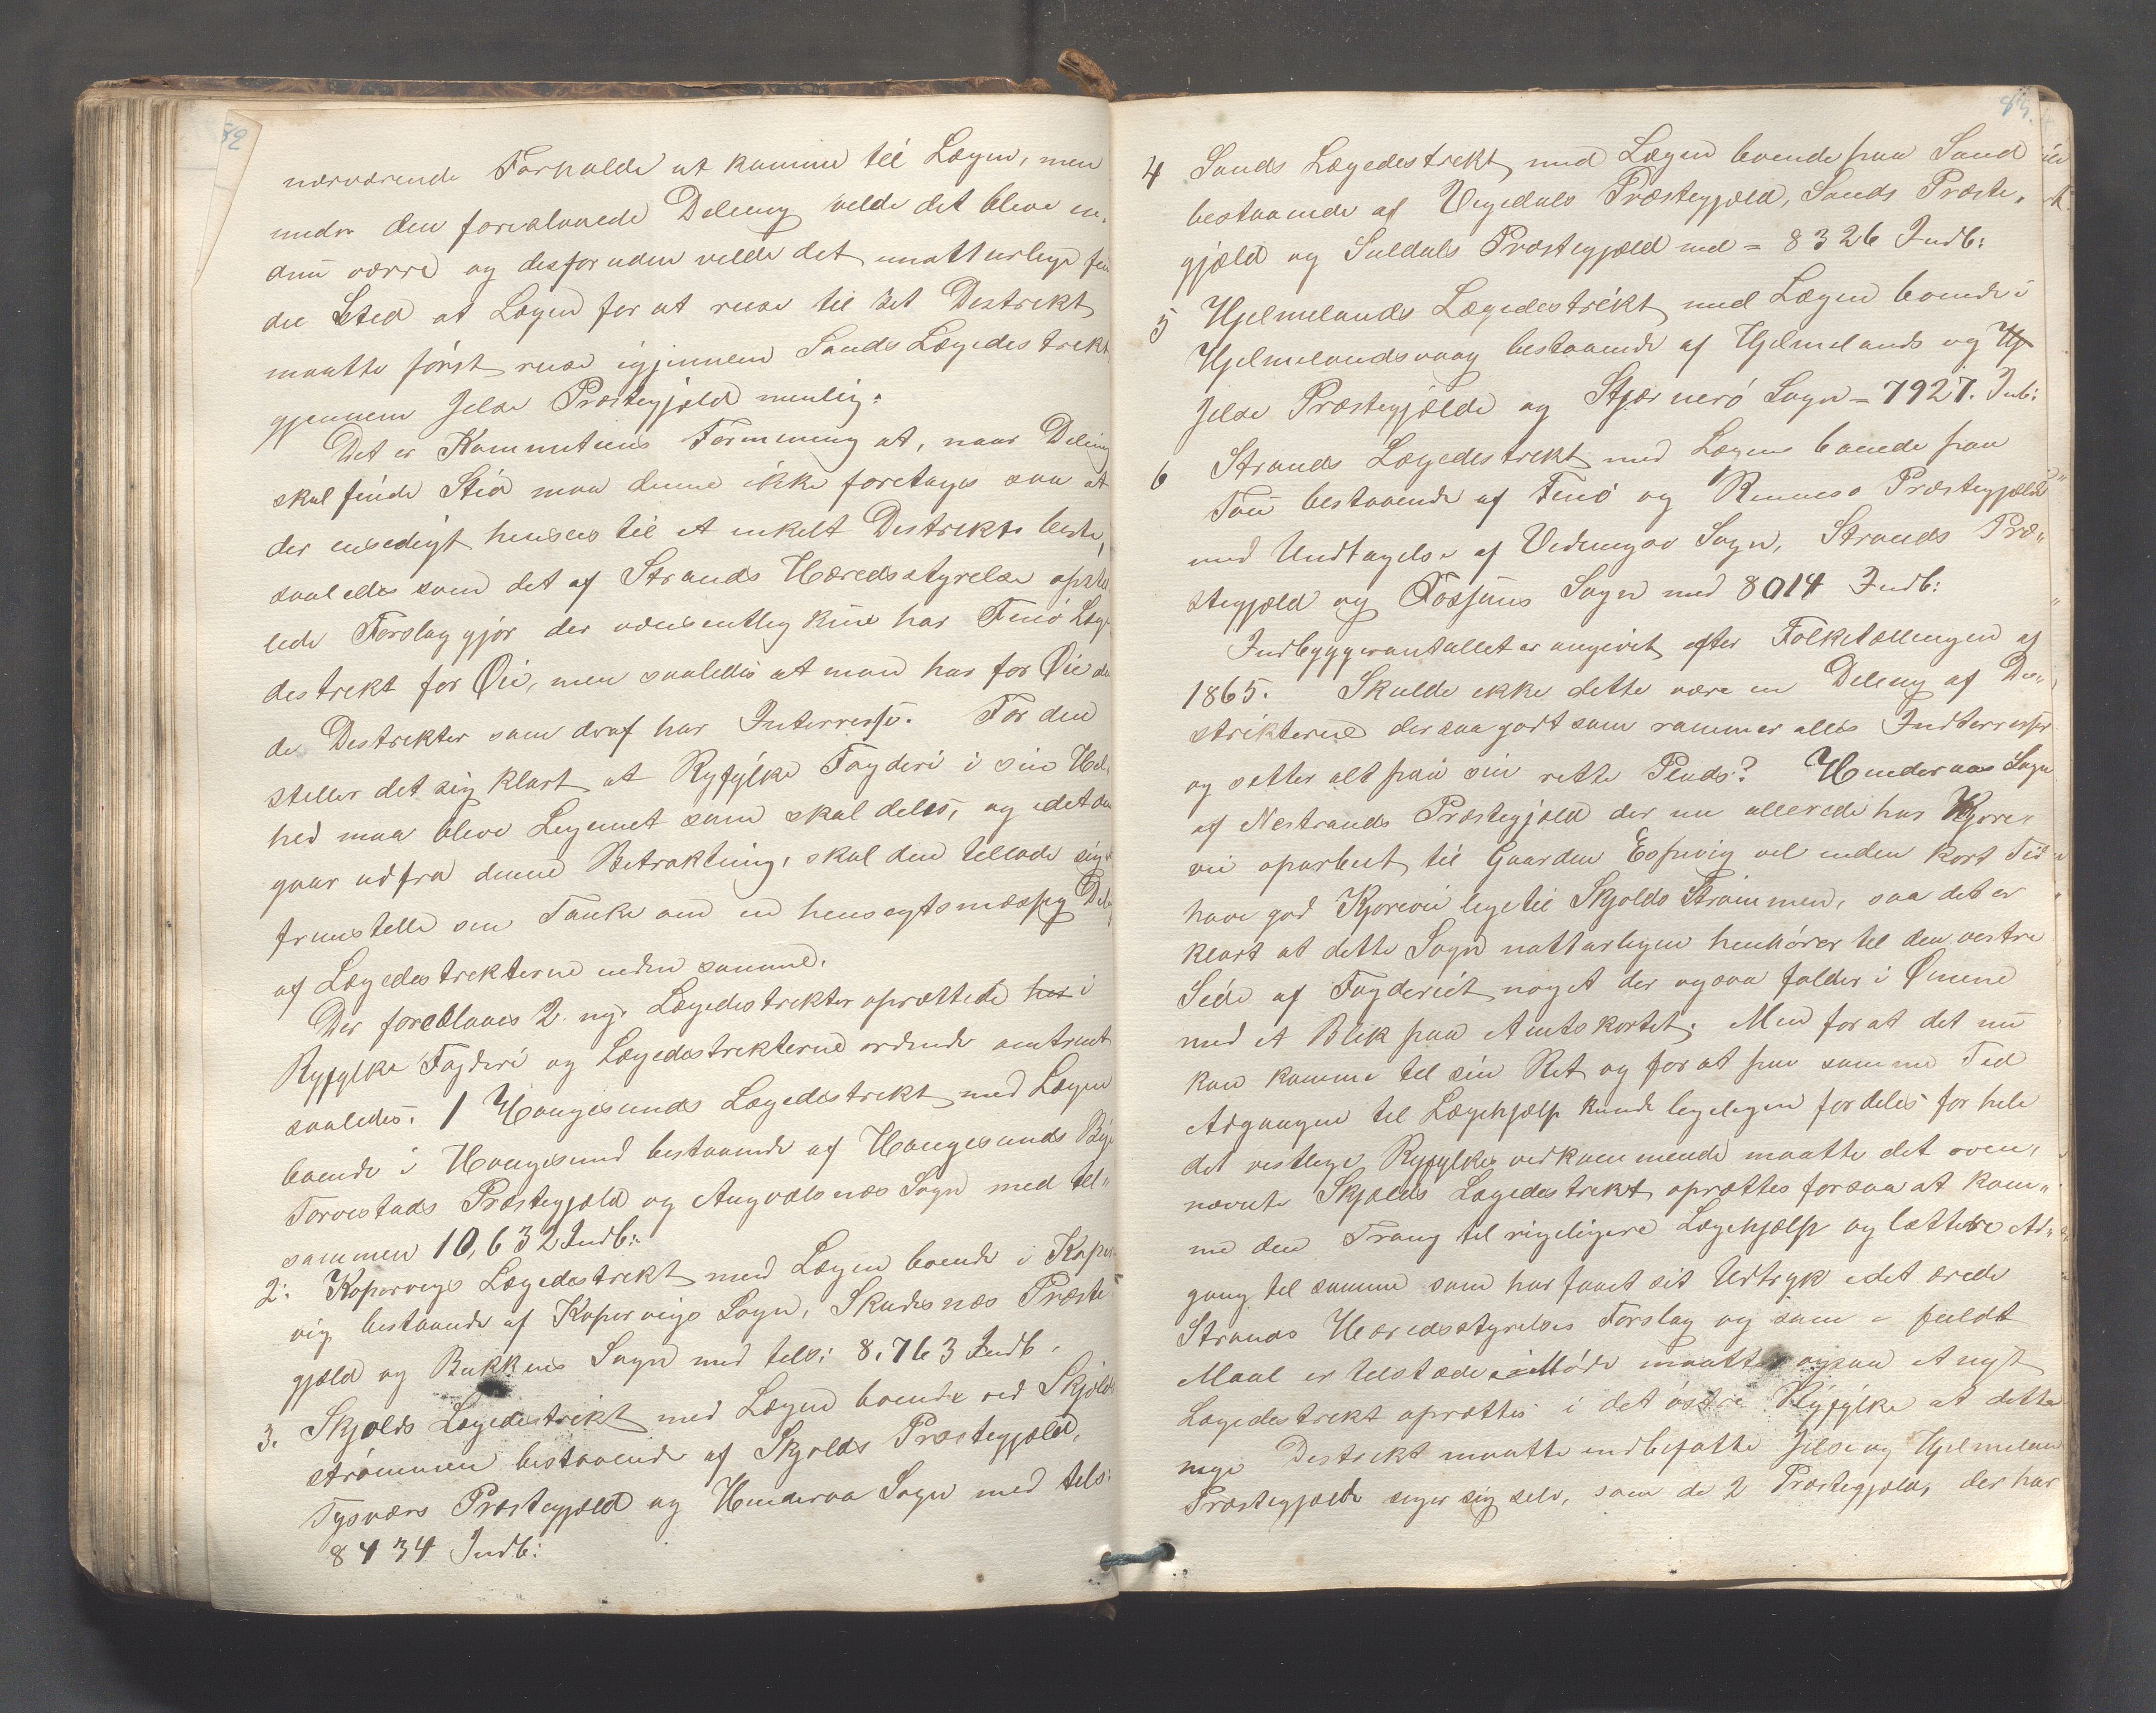 82
nærværende Forholde at komme til Lægen, men
under den foreslaaede Deling vilde det blive en,
dnu værre og desforuden vilde det unatturlige fin
de Sted at Lægen for at reise til set Destrekt
maatte først reise igjennem Sands Lægedestrekt
gjennem Jelse Præstegjeld nemlig.
Det er Kommitteens Formening at, naar Deling
skal finde Sted maa denne ikke foretages saa at
der ensedigt henses til et enkelt Destrekts beste,
saaledes som det af Strands Herredsstyrelse opstil
lede Forslag gjør der væsentlig kun har Finø Læge
destrekt for Øie, men saaledes at man har for Øie alle
de Destrekter som draf har Interresse. For den
steller det sig klart at Ryfylke Fogderi i sin Hel,
hed maa blive Legemet som skal deles, og idet den
gaar ud fra denne Betraktning, skal den tellade sig at
fremstelle sin Tanke om en hensegtsmæssig Deling
af Lægedestrekterne inden samme.
Der foreslaaes 2 nye Lægedestrekter oprættede her i
Ryfylke Fogderi og Lægedestrekterne ordnede omtrent
saaledes. 1 Haugesunds Lægedestrekt med Lægen
boende i Haugesund bestaaende af Haugesunds By
Torvestads Præstegjæld og Augvalsnæs Sogn med tel„
sammen 10,632 Indb:
2: Kopervigs Lægedestrekt med Lægen boende i Koper
vig bestaaende af Kopervigs Sogn, Skudesnæs Præste
gjæld og Bukkens Sogn med tels: 8,763 Indb.
3. Skjolds Lægedestrekt med Lægen boende ved Skjolds
strømmen bestaaende af Skjolds Præstegjæld,
Tysværs Præstegjæld og Hinderaa Sogn med tels:
8434 Indb:
83.
4 Sands Lægedestrekt med Lægen boende paa Sand
bestaaende af Vigedals Præstegjæld, Sands Præste,
gjæld og Suldals Præstegjæld med = 8326 Indb:
5 Hjelmelands Lægedestrekt med Lægen boende i
Hjelmelandsvaag bestaaende af Hjelmelands og Hj
Jelse Præstegjælde og Stjærnerø Sogn = 7927. Inb:
6 Strands Lægedestrekt med Lægen boende paa
Tau bestaaende af Finø og Rennesø Præstegjælde
med Undtagelse af Vidnengso Sogn, Strands Præ„
stegjæld og Fossans Sogn med 8014 Indb:
Indbyggerantallet er angivet efter Folketællingen af
1865. Skulde ikke dette være en Deling af De„
strikterne der saa godt som rammer alles Indterresser
og setter alt paa sin rette Plads? Hinderaas Sogn
af Nestrands Præstegjæld der nu allerede har Kjøre„
vei oparbeit til Gaarden Espevig vil inden kort Tid
have god Kjørevei lige til Skjolds Strømmen, saa det er
klart at dette Sogn natturligen henhører til den vestre
Side af Fogderiet noget der ogsaa falder i Øinene
med et Blik paa Amtskortet. Men for at det nu
kan komme til sin Ret og for at paa samme Ted
Adgangen til Lægehjælp kunde ligeligen fordeles for hele
det vestlige Ryfylkes vedkommende maatte det oven,
nævnte Skjolds Lægedestrekt oprættes forsaa at kom„
me den Trang til rigeligere Lægehjælp og lettere Ad„
gang til samme som har faaet sit Udtryk i det ærede
Strands Herredsstyrelses Forslag og som i fuldt
Maal er telstæde imøde maatte ogsaa et nyt
Lægedestrekt oprættes i det østre Ryfylke at dette
nye Destrekt maatte indbefatte Jelse og Hjelmeland
Præstegjælde seger sig selv, som de 2 Præstegjæld, der har